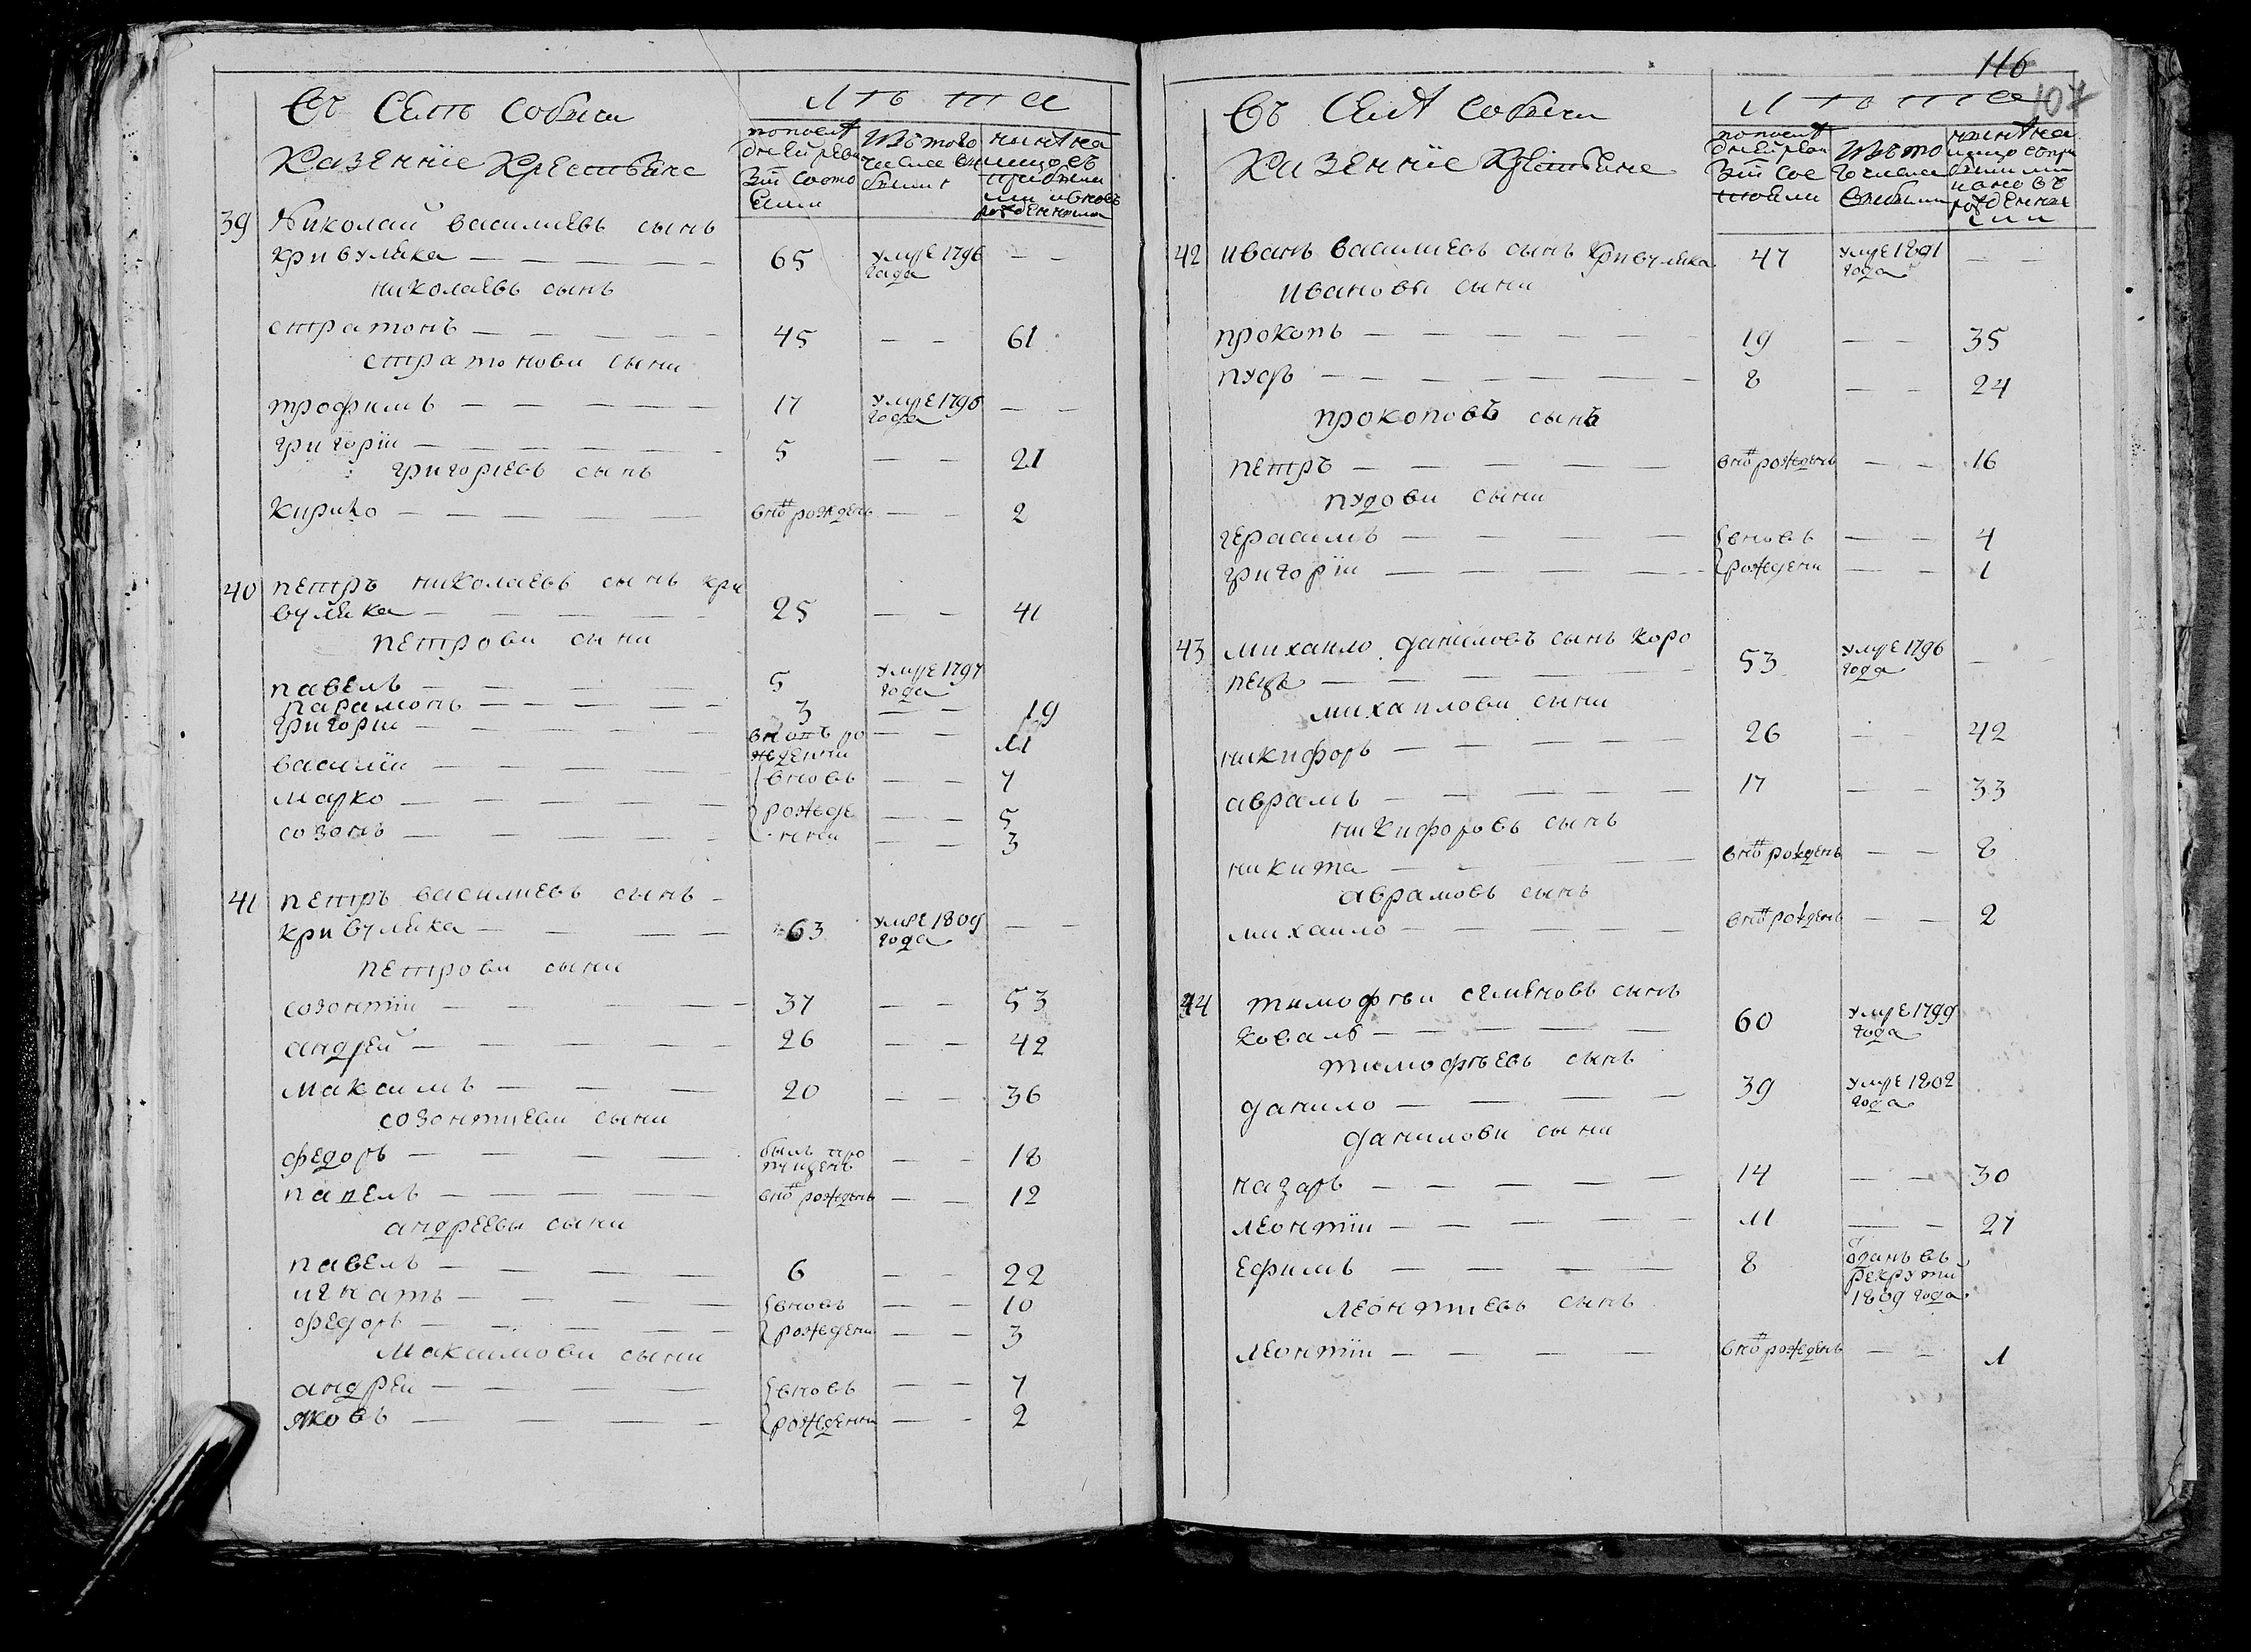 Въ Селѣ Собичи
Казенніе Крестьяне
Лѣта
по послѣ
дней реви
зіи состо
яли
Изъ того
числа вы
были
нынѣ на
лицо съ
прибыли
ми и вновь
рожденными
39 Николай василиевъ сынъ
кривуляка — 65 умре 1796 года — —
николаевъ сынъ
стратонъ — 45 — — 61
стратонови сыни
трофимъ — 17 умре 1796 года — —
григорій — 5 — — 21
григориевъ сынъ
кирико — вно рожденъ — — 2
40 петръ николаевъ сынъ кри
вуляка — 25 — — 41
петрови сыни
павелъ — 5 умре 1797 года
парамонъ — 3 — — 19
григорій — вновъ ро — — 11
василій — ждении
марко — вновъ — — 7
созонъ — рожде — — 5
нни — — 3
41 петръ василиевъ сынъ —
кривуляка — 63 умре 1809 года — —
петрови сыни
созонтій — 37 — — 53
андрей — 26 — — 42
максимъ — 20 — — 36
созонтиеви сыни
федоръ — былъ про пущенъ — — 18
павелъ — вно рожденъ — — 12
андреевы сыни
павелъ — 6 — — 22
игнатъ — вновъ — — 10
федоръ — рождени — — 3
Максимови сыни
андрей — вновъ — — 7
яковъ — рожденни — — 2
116
107
Въ Селѣ Собичи
Казенніе Крестьяне
Лѣта
по послѣ
дней реви
зіи сос
тояли
Изъ то
го числа
выбыли
нынѣ на
лицо съ при
былими
и новъ
рожденни
ми
42 иванъ василиевъ сынъ Кривуляка 47 умре 1801 года — —
ивановы сыни
прокопъ — 19 — — 35
пудъ — 8 — — 24
прокоповъ сынъ
петръ — вно рожденъ — — 16
пудови сыни
герасимъ — вновъ — — 4
григорій — рождени — — 1
43 михаило даниловъ сынъ коро
пецъ — 53 умре 1796 года — —
михаилови сыни
никифоръ — 26 — — 42
аврамъ — 17 — — 33
никифоровъ сынъ
никита — вно рожденъ — — 8
аврамовъ сынъ
михаило — вно рожденъ — — 2
44 тимофѣи семеновъ сынъ
коваль — 60 умре 1799 года
тимофѣевъ сынъ
данило — 39 умре 1802 года
данилови сыни
назаръ — 14 — — 30
леонтій — 11 — — 27
ефимъ — 8 отданъ въ рекруты 1809 года
леонтиевъ сынъ
леонтій — вно рожденъ — — 1